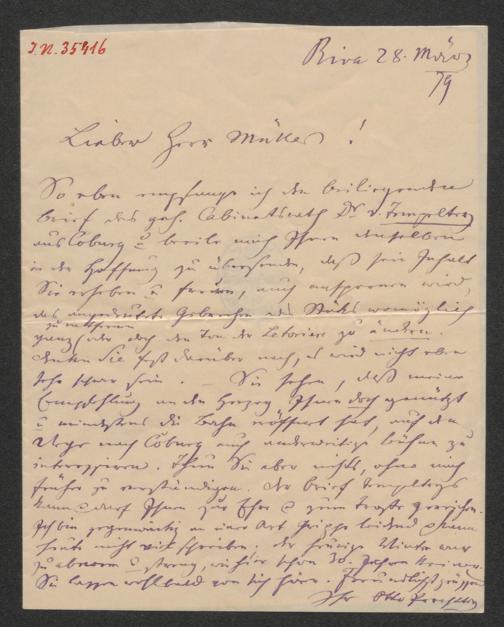 I.N. 35416
Riva 28. März
/79
Lieber Herr Müller!
So eben empfange ich den beiliegenden
Brief des geh. Cabinetsrath Dr. v. Tempeltey
aus Coburg u beeile mich Ihnen denselben
in der Hoffnung zu übersenden, daß sein Inhalt
Sie erheben u freuen, auch anspornen wird,
das angedeutete Gebrechen des Stüks womöglich
ganz oder doch den Ton der zu ändern.
denken Sie fest darüber nach, es wird nicht eben
sehr schwer sein. – Sie sehen, daß meine
Empfehlung an den Herzog Ihnen doch genützt
u mindestens die Bahn eröffnet hat, auf dem
Wege nach Coburg auch anderweitige Bühnen zu
interessiren. Thun Sie aber nichts, ohne mich
früher zu verständigen. der Brief Tempelteys
kann u darf Ihnen zur Ehre u zum Troste gereichen.
Ich bin gegenwärtig an einer Art Grippe leidend u kann
heute nicht viel schreiben. der heurige Winter war
zu abnorm u streng, wie hier schon 30 Jahren keiner.
Sie lassen wohl bald von sich hören. Freundlichst grüssend
Ihr Otto Prechtler